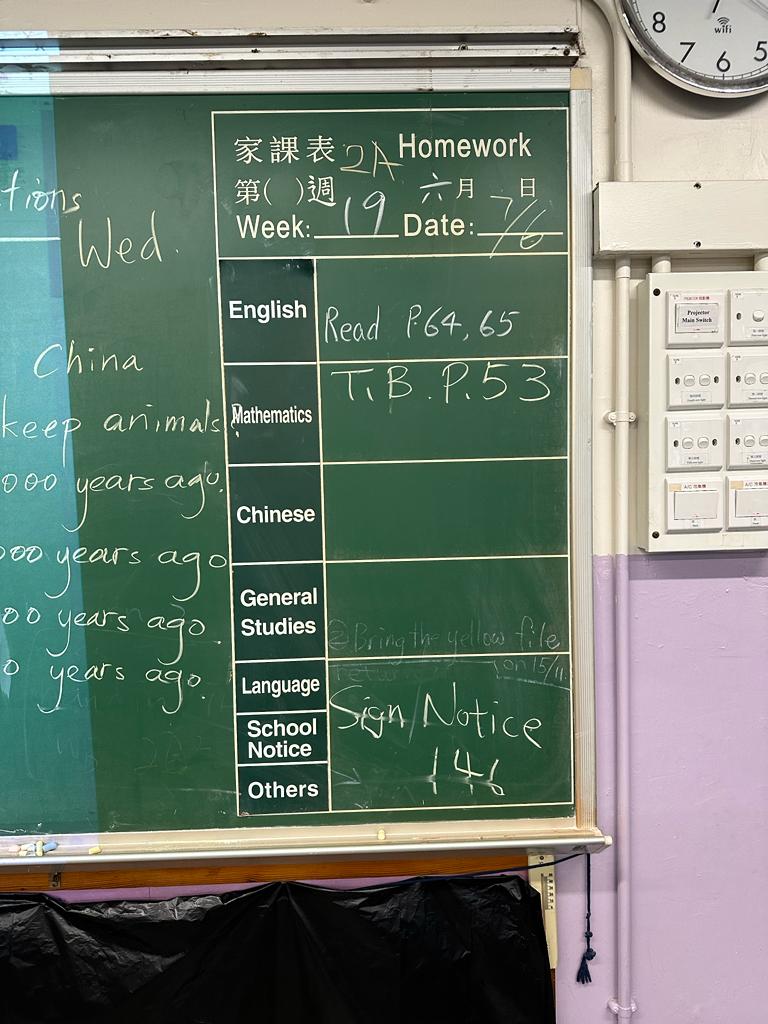 8
7
6
5
7
wifi
tions
Wed.
China
keep animals
000 years ago.
000 years ago
00 years ago.
0 years ago.
家課表 2A Homework
第( )週 六月 日
Week: 19 Date: 7/6
English
Read P.64, 65
Mathematics
T.B. P.53
Chinese
General
Studies
②Bring the yellow file
on 15/11
Language
School
Notice
Sign Notice
146
Others
Projector
Main Switch